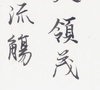 領茂
流觴